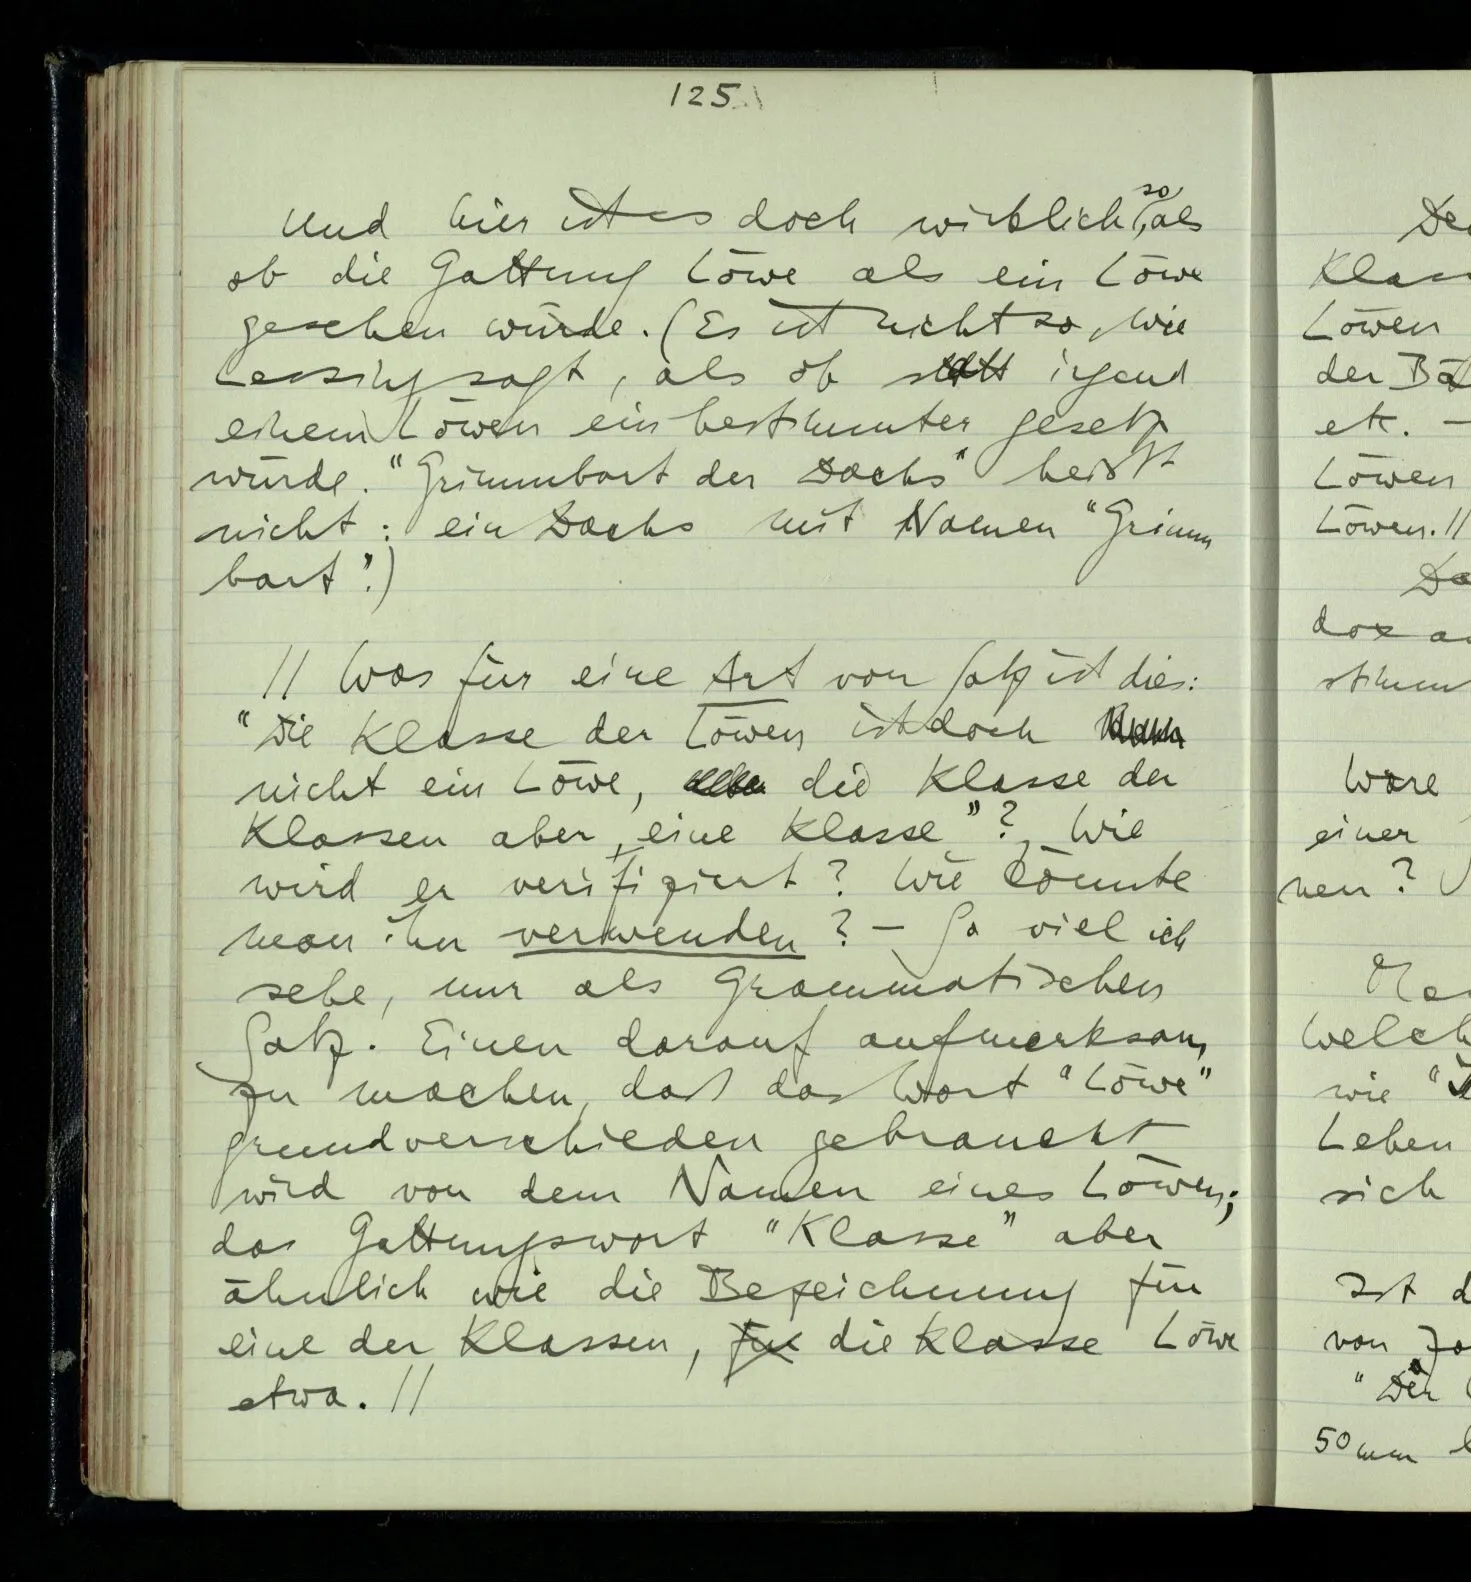 125
Und hier ist es doch wirklich so, als
ob die Gattung Löwe als ein Löwe
gesehen würde. (Es ist nicht so, wie
Lessing sagt, als ob statt irgend
einem Löwen ein bestimmter gesetzt
würde. "Grimmbart der Dachs" heißt
nicht: ein Dachs mit Namen "Grimm
bart".)
// Was für eine Art von Satz ist dies:
"Die Klasse der Löwen ist doch
nicht ein Löwe, die Klasse der
Klassen aber, eine Klasse"? Wie
wird er verifiziert? Wie könnte
man ihn verwenden? — So viel ich
sehe, nur als grammatischen
Satz. Einen darauf aufmerksam
zu machen, daß das Wort "Löwe"
grundverschieden gebraucht
wird von dem Namen eines Löwen;
das Gattungswort "Klasse" aber
ähnlich wie die Bezeichnung für
eine der Klassen, für die Klasse Löwe
etwa. //
Löwen
der
etc. —
Löwen
Löwen. //
Wäre
einer
nen?
wie "
Leben
sich
Ist d
von
50 mm